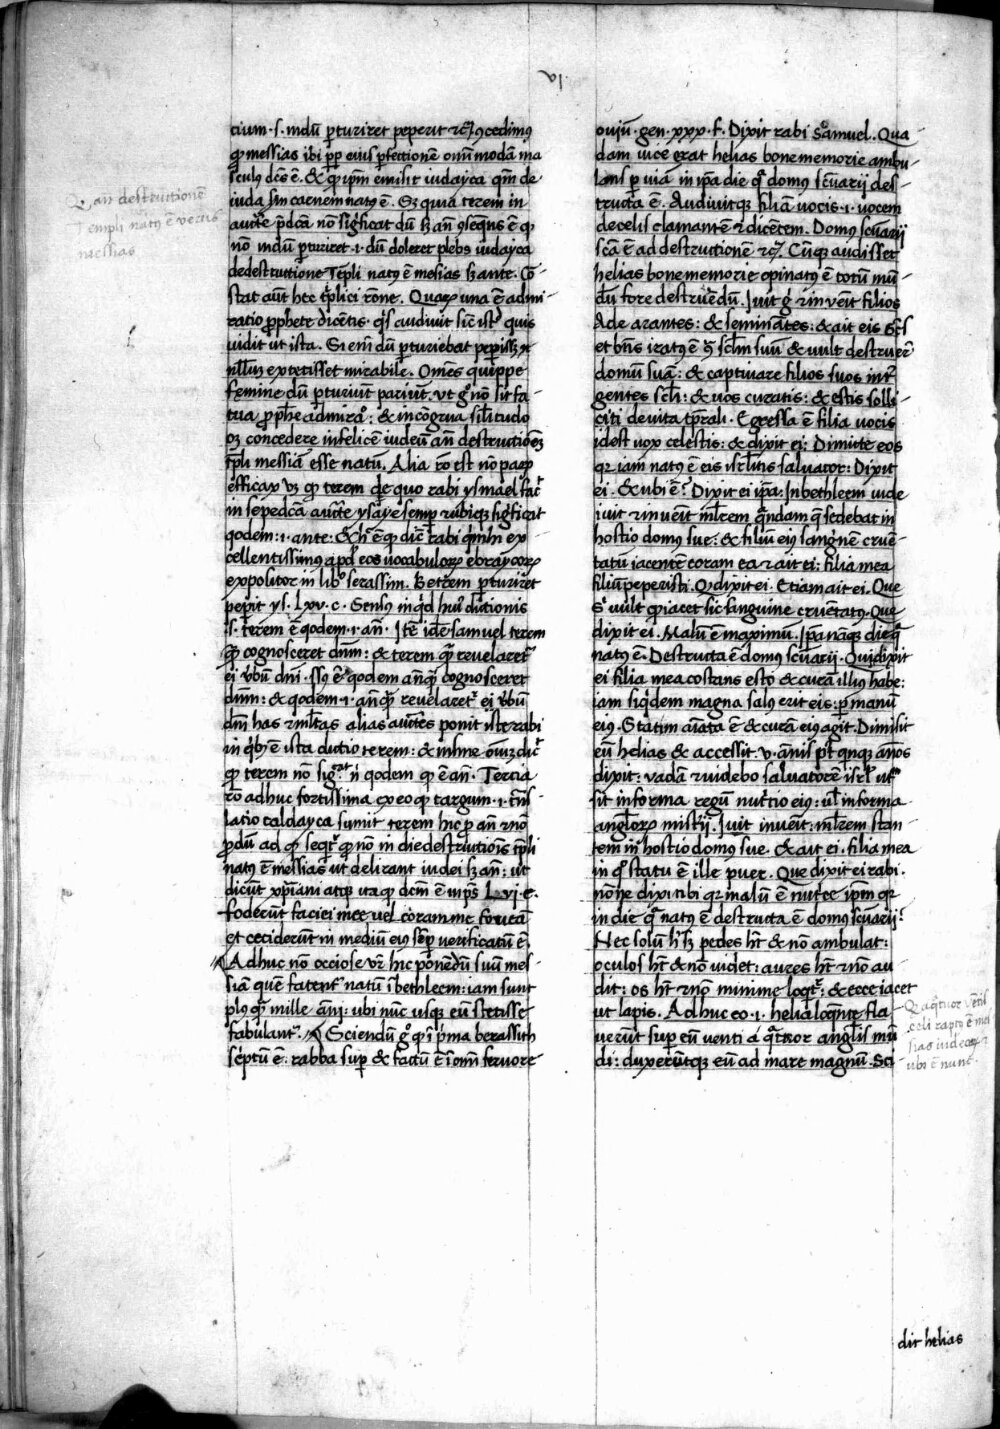 vi
cium .s. mdū parturiret peperit ⁊c̄. ꝯcedimus
ꝙ messias ibi ꝓpꝑ eius ꝑfectionē omī modam ma
sculꝰ dc̄s ē. & ꝙ ip̄m emisit iudayca qm̄ de
iuda scd̄m carnem natꝰ ē. Sꝫ quia terem in
aucte p̄dc̄a nō significat dū sꝫ an̄ ꝯseqn̄s ē ꝙ
nō mdum ꝑturiret .i. dū doleret plebs iudayca
de destructione Tēpli natꝰ ē mesias sꝫ ante. Cō
stat aūt hec tp̄lici rōne. Quaꝝ una ē admi
ratio ꝓphete dicētis. qͥs audiuit sic̄ istͩ quis
uidit ut ista. Si em̄ dū ꝑturiebat peꝑissꝫ
nll̄m extetisset mirabile. Om̄es quippe
femine dū ꝑturiunt pariūt. ut gͦ nō sit fa
tua ꝓphe admiroͣ: & incōgrua sil̄itudo
oꝫ concedere infelicē iudeū an̄ destructionē
tp̄li messiā esse natū. Alia rō est nō paꝝ
efficax vꝫ ꝙ terem de quo rabi ysmael facͭ
in sepedcā aucte ysaye semꝑ ubiqꝫ sigficat
qodem: .i. ante: & h̄ ē ꝙ dic̄ rabi qimhi ex
cellentissimus apd̓ eos uocabuloꝝ ebraycoꝝ
expolitor in libͦ serassim. Beterem ꝑturiret
peꝑit ys. lxv. c. Sensus inqͥd huiꝰ dictionis
.s. terem ē qodem .i. an̄. Itē idē samuel terem
ꝙ cognosceret dnm̄: & terem qͣ reuelaretͬ
ei ūbū dni. Ssꝰ ē qodem anqͣ cognosceret
dnm̄: & qodem .i. anqͣ reuelaretͬ ei ūbū
dni has ⁊ ml̄tas alias auctes ponit iste rabi
in qͥbꝰ ē ista dictio terem: & in fine oīuꝫ dicͭ
ꝙ terem nō sigͣt n̄ qodem ꝙ ē an̄. Tercia
rō adhuc fortissima ex eo ꝙ targum .i. tn̄s
latio caldayca sumit terem hic ꝓ an̄ ⁊ nō
ꝓ dū ad qͣ seqͥtͬ ꝙ nō in die destructiōis tp̄li
natꝰ ē messias ut delirant iudei sꝫ an̄: ut
dicūt xp̄iani atqꝫ ita ꝙ dcm̄ ē in ps̄. Lvi. c.
foderūt faciei mee uel coram me foueā
et ceciderūt in mediū eiꝰ seꝑ uerificatū ē.
Adhuc nō occiose vr̄ hic ponendū suum mes
siā quē fatentͬ natū i bethleem: iam sunt
plꝰ qͣ mille an̄i: ubi nūc usqꝫ eū stetisse
fabulantͬ. Sciendū gͦ ꝙ ī p̄ma berassith
septū ē. rabba suꝑ & factū ē ī omī feruore
ouiū. gen. xxx. f. Dixit rabi Samuel. Qua
dam uice erat helias bone memorie ambu
lans ꝑ uiā in ip̄a die qͣ domus sc̄uarij des
tructa ē. Audiuitqꝫ filiā uocis .i. uocem
de celis clamantē & dicētem. Domus sc̄uarij
scā ē ad destructionē ⁊c̄. Cūqꝫ audisset
helias bone memorie opinatꝰ ē totū mū
dū fore destruēdū. Iuit gͦ ⁊ inuēit filios
Ade arantes: & seminātes: & ait eis
et bn̄s iratꝰ ē qͣ scl̄m suū & uult destruer̄
domū suā: & captiuare filios suos intͬ
gentes scl̄i: & uos curatis: & estis solli
citi de uita tp̄rali. Egressa ē filia uocis
idest uox celestis: & dixit ei: Dimitte eos
qr iam natꝰ ē eis isrl̄itis saluator: Dixit
ei. & ubi ē? Dixit ei ip̄a. In bethleem iude
iuit ⁊ inuēit ml̄rem qͣndam q̄ sedebat in
hostio domus sue: & filiū eiꝰ sangnē cruē
tatū iacentē coram ea ⁊ ait ei: filia mea
filiū peꝑisti. Q dixit ei. Etiam ait ei. Que
ē uult ꝙ iacet sic sanguine cruētatꝰ. Que
dixit ei. Malū ē maximū. Ip̄a nāqꝫ die qͣ
natꝰ ē. Destructa ē domus sc̄uarij. Qui dixit
ei filia mea cōstans esto & curā illiꝰ habe:
iam siqͥdem magna salꝰ erit eis: ꝑ manū
eiꝰ. Statim aīata ē & curā eiꝰ agit. Dimisit
eū helias & accessit. v. ānis pꝰt qnqꝫ ānos
dixit: vadā ⁊ uidebo saluatorē isrl̄ utͬ
sit in forma regū nutͥcio eiꝰ: ul̄ in forma
angloꝝ mistrij. Iuit inuēit: ml̄rem stan
tem in hostio domꝰ sue. & ait ei. filia mea
in qͦ statu ē ille puer. Que dixit ei rabi.
nōne dixi tibi qr malū ē nutͥre ip̄m qr
in die qͣ natꝰ ē destructa ē domꝰ sc̄uarij?
Nec solū h̄ sꝫ pedes ht̄ & nō ambulat:
oculos ht̄ & nō uidet: aures ht̄ ⁊ nō au
dit: os ht̄ ⁊ nō minime loqͥtͬ: & ecce iacet
ut lapis. Adhuc eo .i. helia loqn̄te fla
uerūt suꝑ eū uenti a qͣtuor anglis mū
di: duxerūtqꝫ eū ad mare magnū. Sci
Q an̄ destructionē
Templi natꝰ ē verus
messias
Q a qͣtuor vētis
celi raptꝰ ē mes
sias iudeoꝝ ⁊
ubi ē nunc.
dit helias